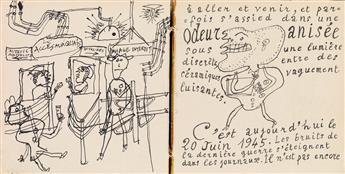 ACCÈS AU QUAIS
à aller et venir, et par-
fois s'assied dans une
odeur anisée
sous une lumière
discrète entre des
céramiques vaguement
luisantes.
C'est aujourd'hui le
20 Juin 1945. Les bruits de
la dernière guerre s'éteignent
dans les journaux. Il n'est pas encore